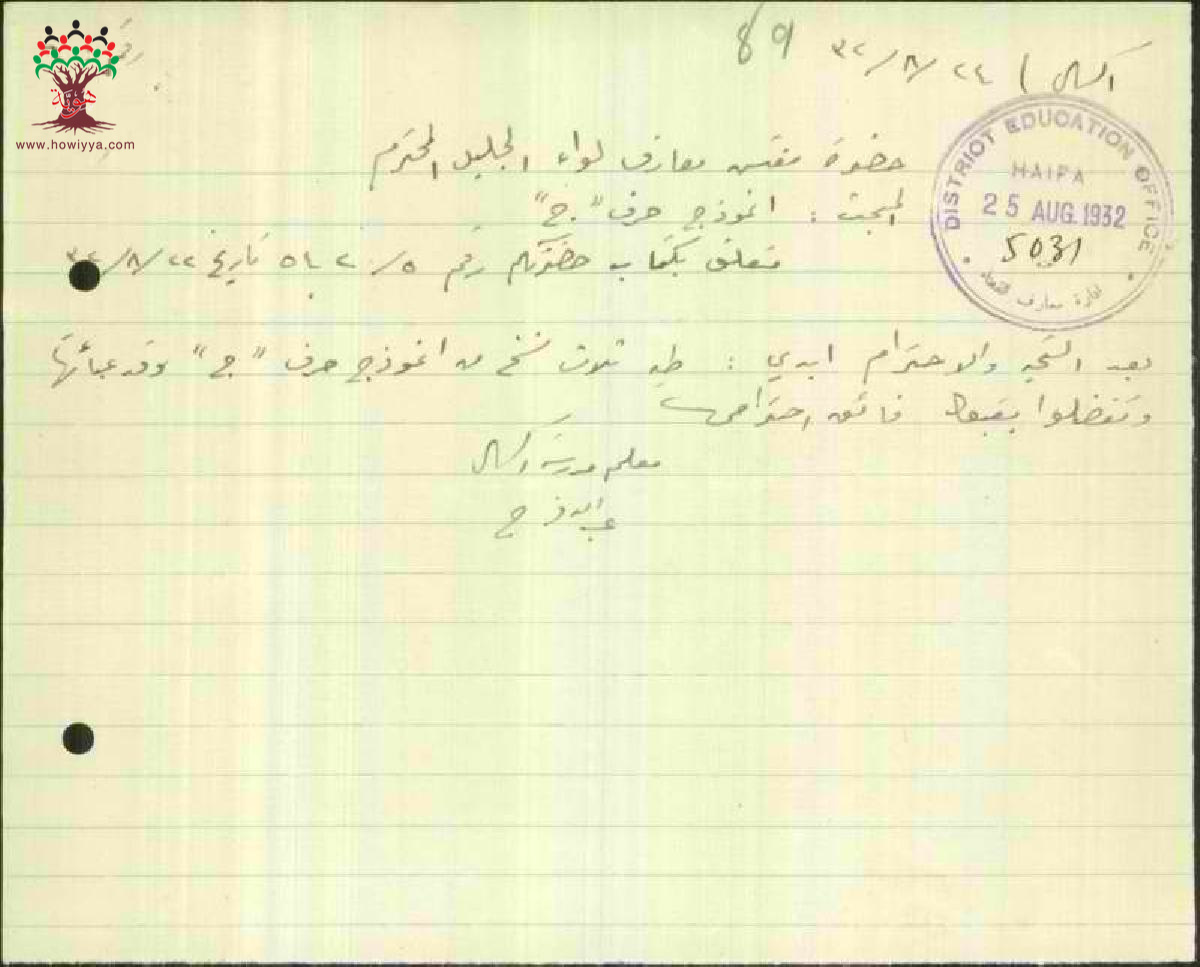 89
اكسال ) ٢٤/٨/٣٢
رقم
هوية
www.howiyya.com
DISTRICT EDUCATION OFFICE
HAIFA
25 AUG. 1932
5031
ادارة معارف
حضرة مفتش معارف لواء الجليل المحترم
المبحث : انموذج حرف "ج"
متعلق بكتاب حضرتكم رقم تاريخ ٢٢/٨/٣٢
بعد التحية والاحترام ابدي : طيه ثلاث نسخ من انموذج حرف "ج" وقد عبأتها
وتفضلوا بقبول فائق احترامي
معلم مدرسة اكسال
عبد الله فرج